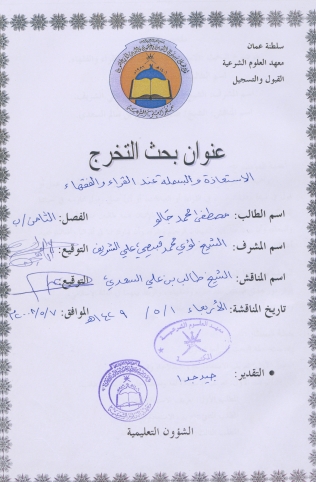 سلطنة عمان
معهد العلوم الشرعية
القبول والتسجيل
عنوان بحث التخرج
الاستعاذة والبسملة عند القراء والفقهاء
اسم الطالب: مصطفى محمد خالو الفصل: الثامن/ب
اسم المشرف: الشيخ لؤي محمد قبيصي علي الشريف التوقيع:
اسم المناقش: الشيخ طالب بن علي السعدي التوقيع:
تاريخ المناقشة: الأربعاء ١/٥/١٤٢٩هـ الموافق: ٢٠٠٨/٥/٧
معهد العلوم الشرعية
• التقدير: جيد جدا
الشؤون التعليمية